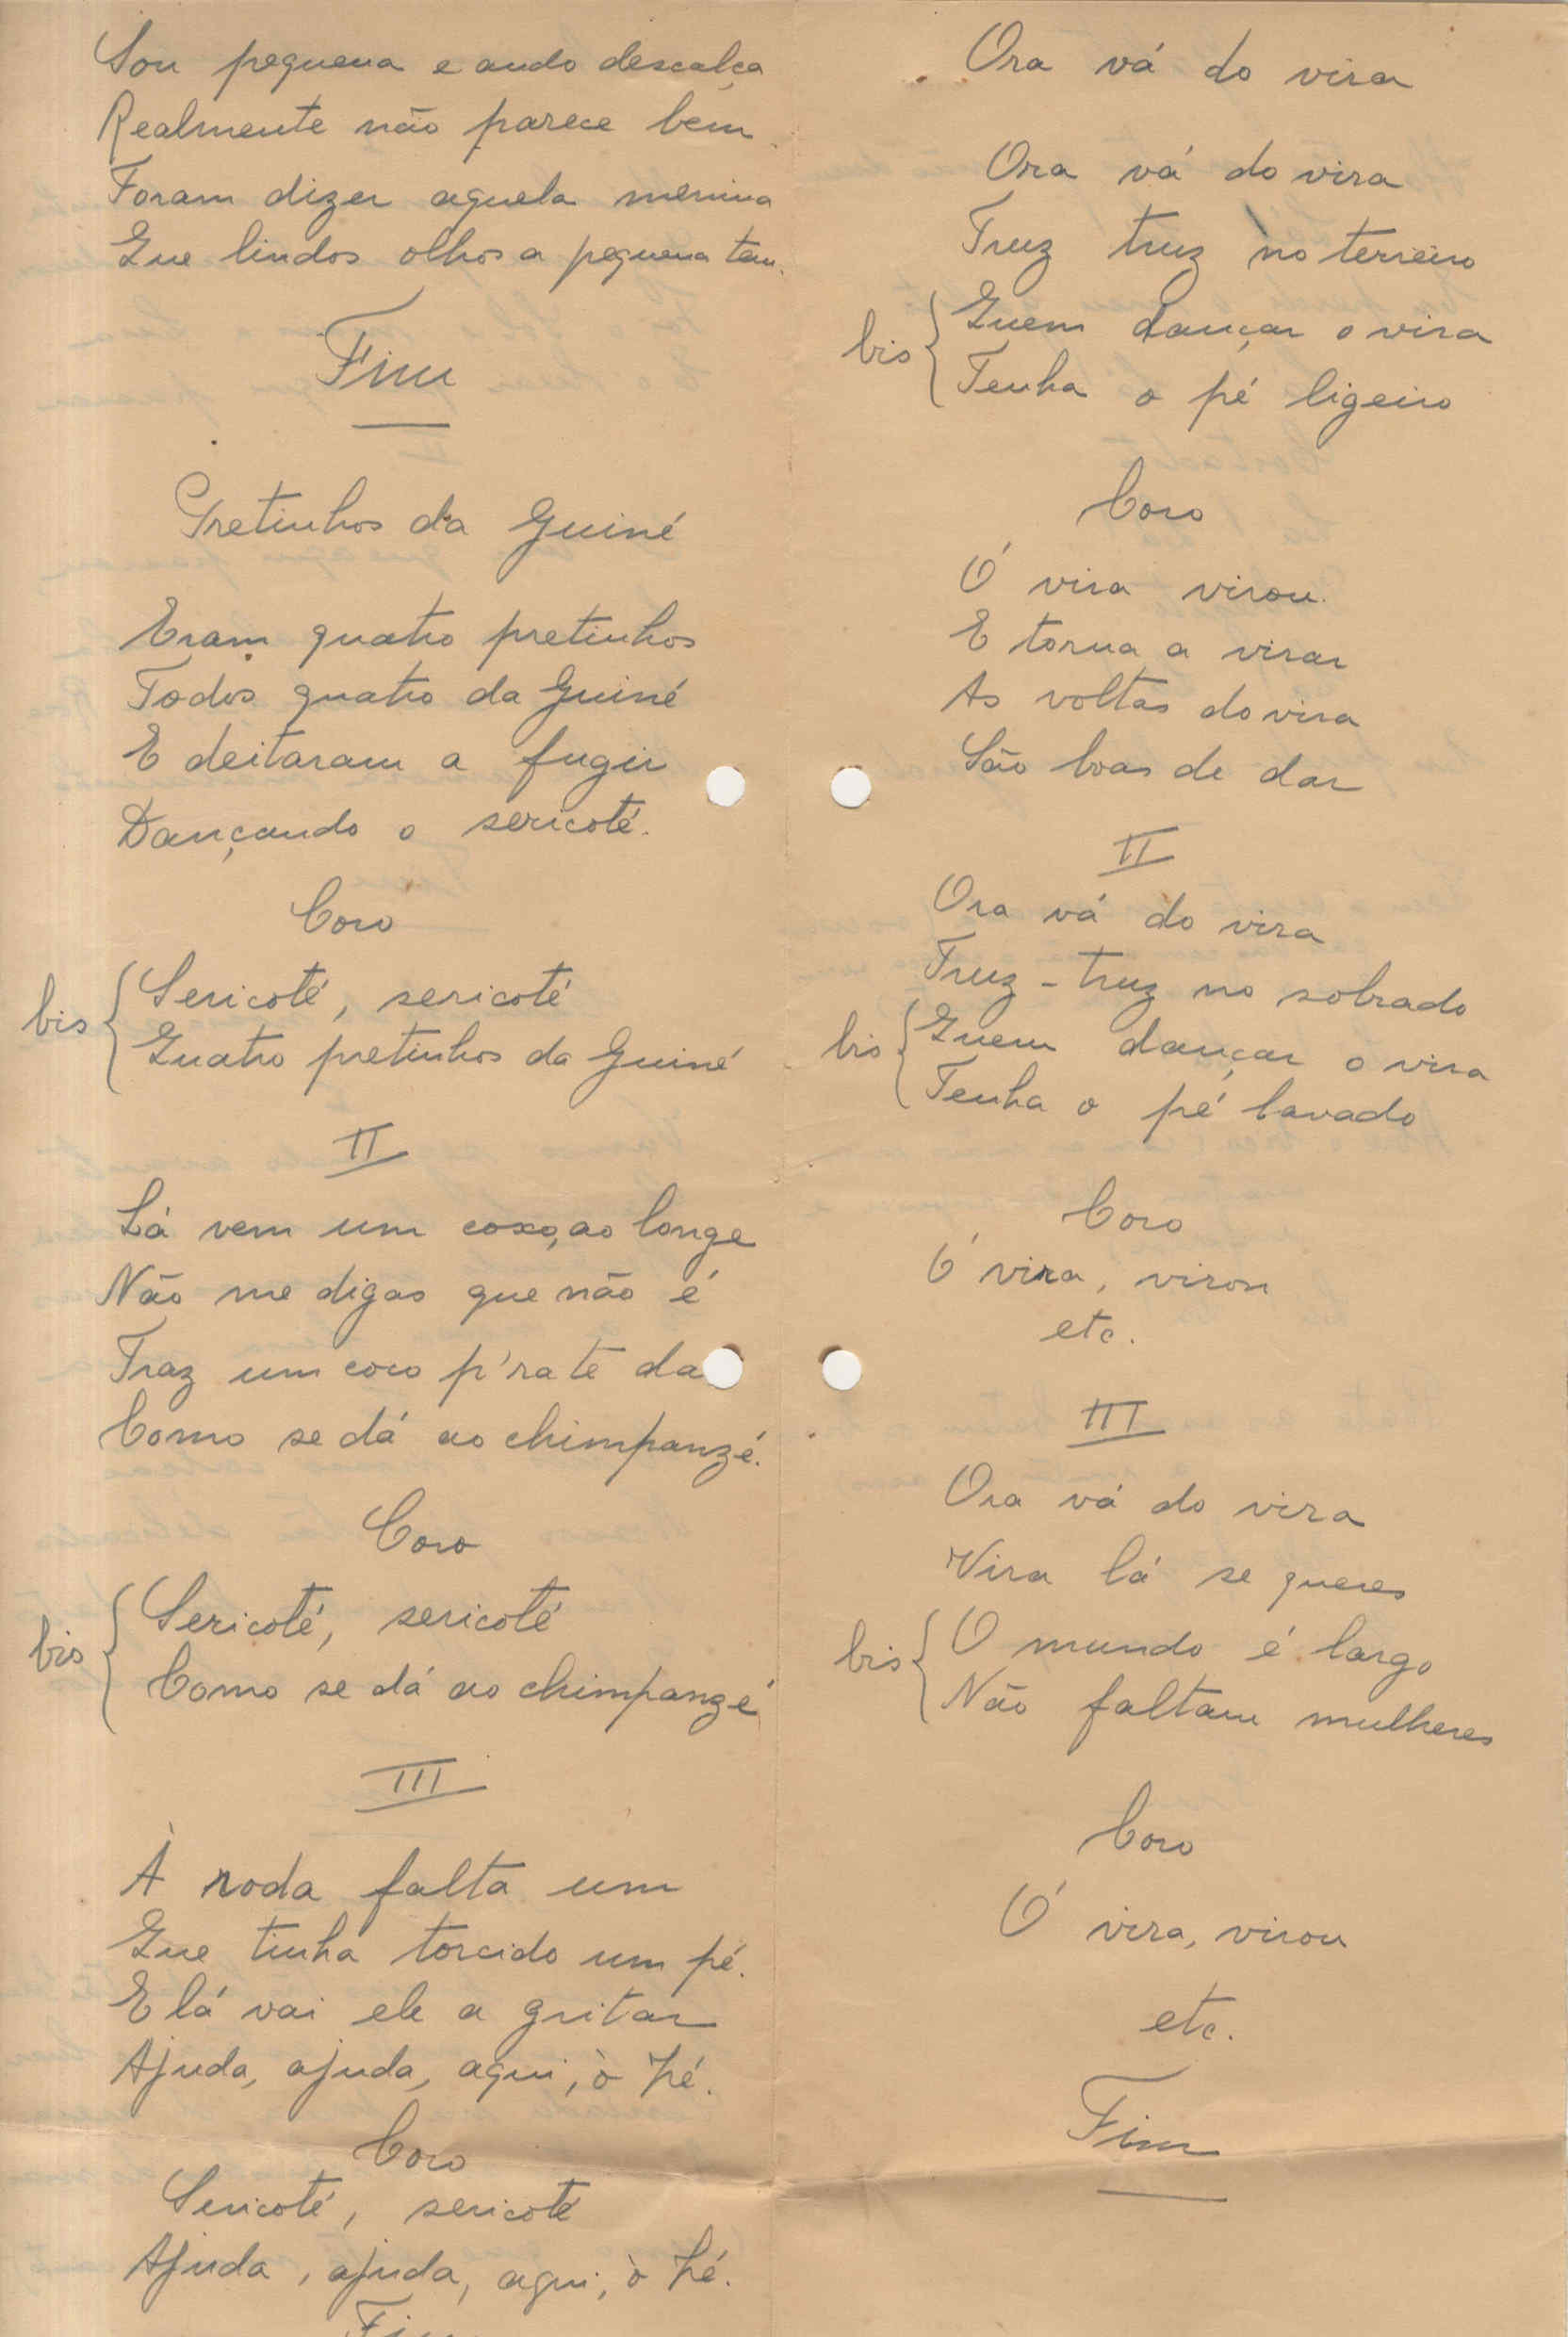 Sou pequena e ando descalça
Realmente não parece bem
Foram dizer aquela menina
Que lindos olhos a pequena tem.
Fim
Pretinhos da Guiné
Eram quatro pretinhos
Todos quatro da Guiné
E deitaram a fugir
Dançando o sericoté.
Coro
bis { Sericoté, sericoté
Quatro pretinhos da Guiné
II
Lá vem um coxo, ao longe
Não me digas que não é
Traz um coco p'ra te da
Como se dá ao chimpanzé.
Coro
bis { Sericoté, sericoté
Como se dá ao chimpanzé
III
À roda falta um
Que tinha torcido um pé.
E lá vai ele a gritar
Ajuda, ajuda, aqui, ò Zé.
Coro
Sericoté, sericoté
Ajuda, ajuda, aqui, ò Zé.
Fim
Ora vá do vira
Ora vá do vira
Truz truz no terreiro
bis { Quem dançar o vira
Tenha o pé ligeiro
Coro
Ó vira virou.
E torna a virar
As voltas do vira
São boas de dar
II
Ora vá do vira
Truz-truz no sobrado
bis { Quem dançar o vira
Tenha o pé lavado
Coro
Ó vira, virou
etc.
III
Ora vá do vira
Vira lá se queres
bis { O mundo é largo
Não faltam mulheres
Coro
Ó vira, virou
etc.
Fim